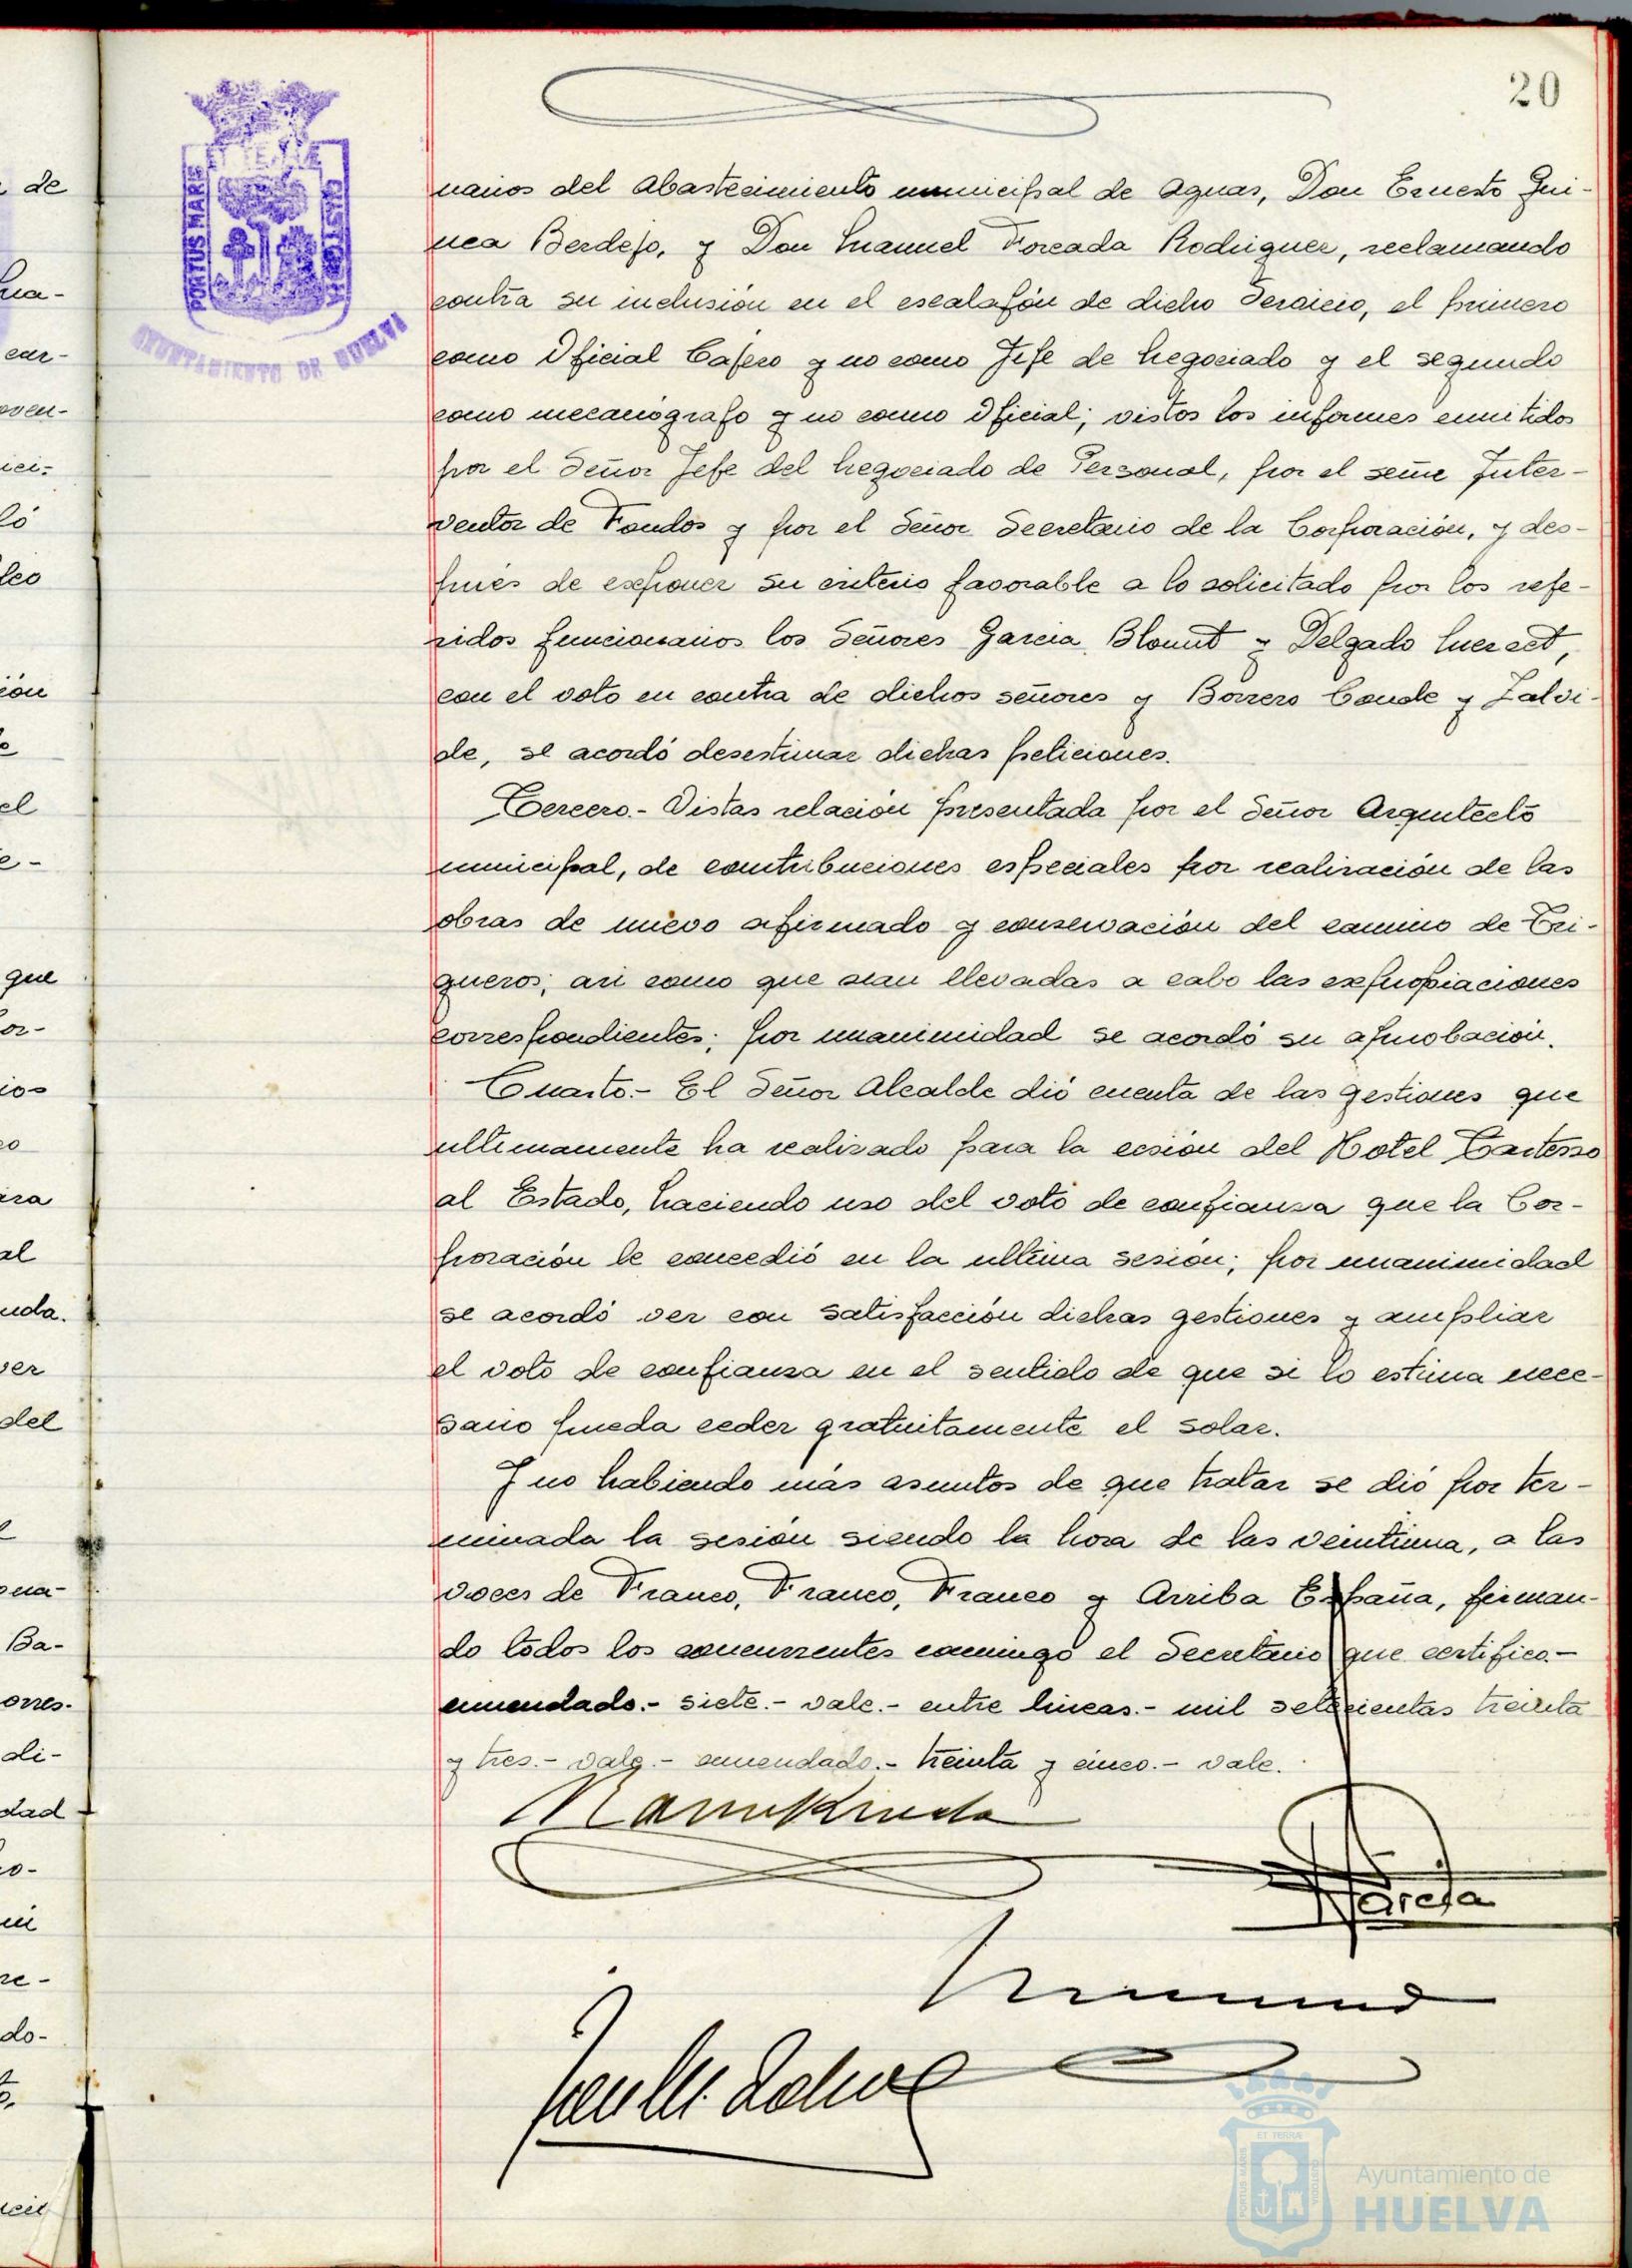 20
PORTUS MARIS
ET TERRAE
CUSTODIA
AYUNTAMIENTO DE HUELVA
narios del Abastecimiento municipal de Aguas, Don Ernesto Gui-
nea Berdejo, y Don Manuel Forcada Rodriguez, reclamando
contra su inclusión en el escalafón de dicho Servicio, el primero
como Oficial Cajero y no como Jefe de Negociado y el segundo
como mecanógrafo y no como Oficial; vistos los informes emitidos
por el Señor Jefe del Negociado de Personal, por el señor Inter-
ventor de Fondos y por el Señor Secretario de la Corporación, y des-
pués de exponer su criterio favorable a lo solicitado por los refe-
ridos funcionarios los Señores Garcia, Blount y Delgado
con el voto en contra de dichos señores y Borrero Conde y Zalvi-
de, se acordó desestimar dichas peticiones.
Tercero.- Vistas relación presentada por el Señor Arquitecto
municipal, de contribuciones especiales por realización de las
obras de nuevo afirmado y conservación del camino de Tri-
gueros; asi como que sean llevadas a cabo las expropiaciones
correspondientes; por unanimidad se acordó su aprobación.
Cuarto.- El Señor Alcalde dió cuenta de las gestiones que
ultimamente ha realizado para la cesión del Hotel Tartesso
al Estado, haciendo uso del voto de confianza que la Cor-
poración le concedió en la ultima sesión; por unanimidad
se acordó ver con satisfacción dichas gestiones y ampliar
el voto de confianza en el sentido de que si lo estima nece-
sario pueda ceder gratuitamente el solar.
Y no habiendo más asuntos de que tratar se dió por ter-
minada la sesión siendo la hora de las veintiuna, a las
voces de Franco, Franco, Franco y Arriba España, firman-
do todos los concurrentes conmigo el Secretario que certifico.-
enmendado.- siete.- vale.- entre lineas.- mil setecientas treinta
y tres.- vale.- enmendado.- treinta y cinco.- vale.
Garcia
Ayuntamiento de
HUELVA